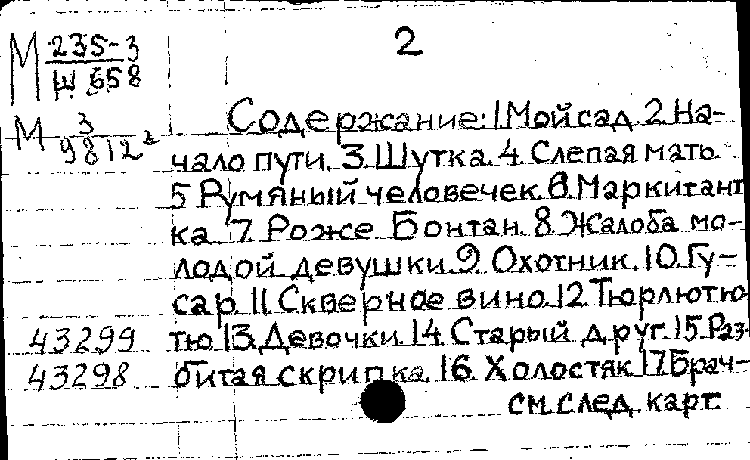 2
М 235-3
Ш 658
М 3
9812²
Содержание: 1 Мой сад. 2. На-
чало пути. 3. Шутка. 4. Слепая мать
5 Румяный человечек. 6. Маркитант
ка. 7. Роже Бонтан. 8. Жалоба мо-
лодой девушки. 9. Охотник. 10. Гу-
сар. 11. Скверное вино. 12. Тюрлютю-
43299 тю 13. Девочки. 14. Старый друг. 15. Раз-
43298 битая скрипка. 16. Холостяк. 17. Брач-
см. след. карт.